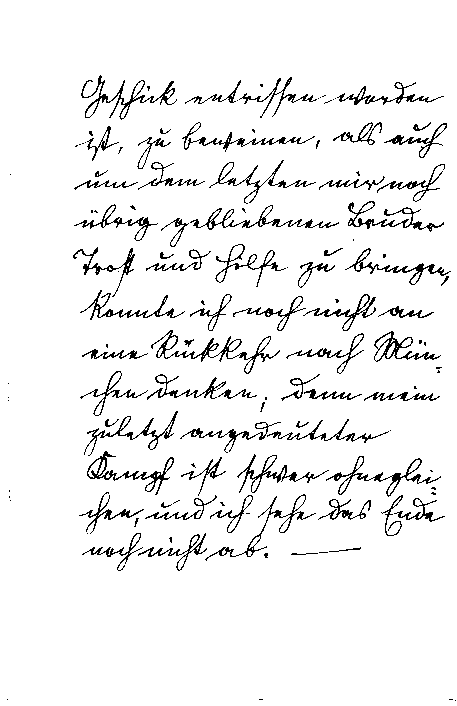 Geschick entrissen worden
ist, zu beweinen, als auch
um dem letzten mir noch
übrig gebliebenen Bruder
Trost und Hilfe zu bringen,
konnte ich noch nicht an
eine Rückkehr nach Mün-
chen denken; denn mein
zuletzt angedeuteter
Kampf ist schwer ohneglei-
chen, und ich sehe das Ende
noch nicht ab. —